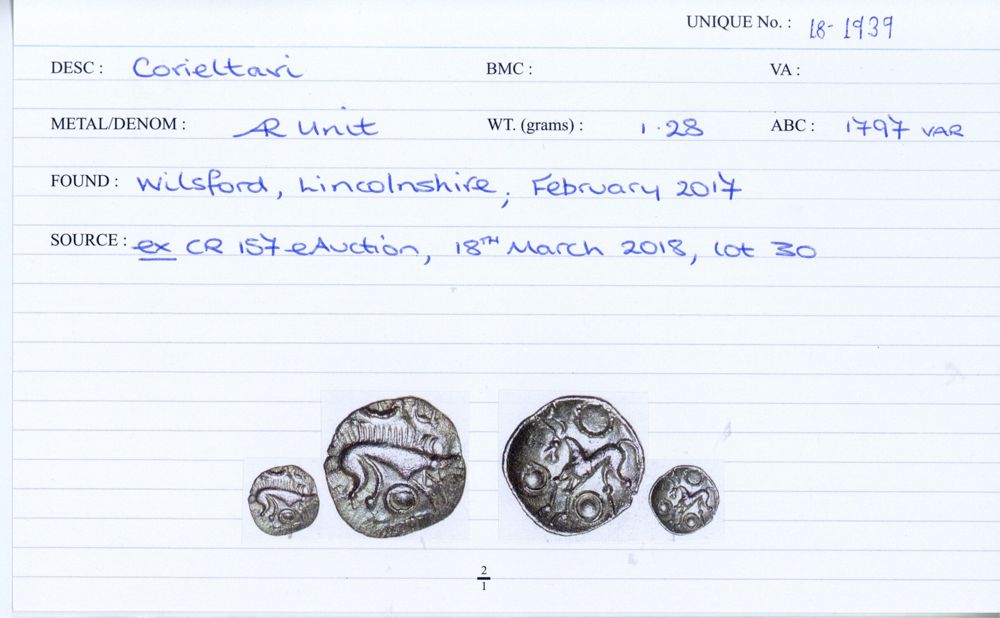 UNIQUE No. : 18-1939
DESC : Corieltavi BMC : VA :
METAL/DENOM : AR Unit WT. (grams) : 1.28 ABC : 1797 VAR
FOUND : Wilsford, Lincolnshire, February 2017
SOURCE : ex CR 157 eAuction, 18TH March 2018, lot 30
2
1